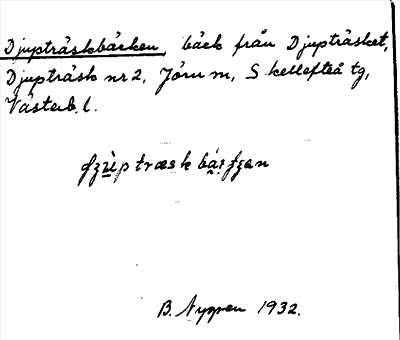 Djupträskbäcken, bäck från Djupträsket,
Djupträsk nr 2, Jörn, S kellefteå tg,
Västerb. l.
B. Nygren 1932.